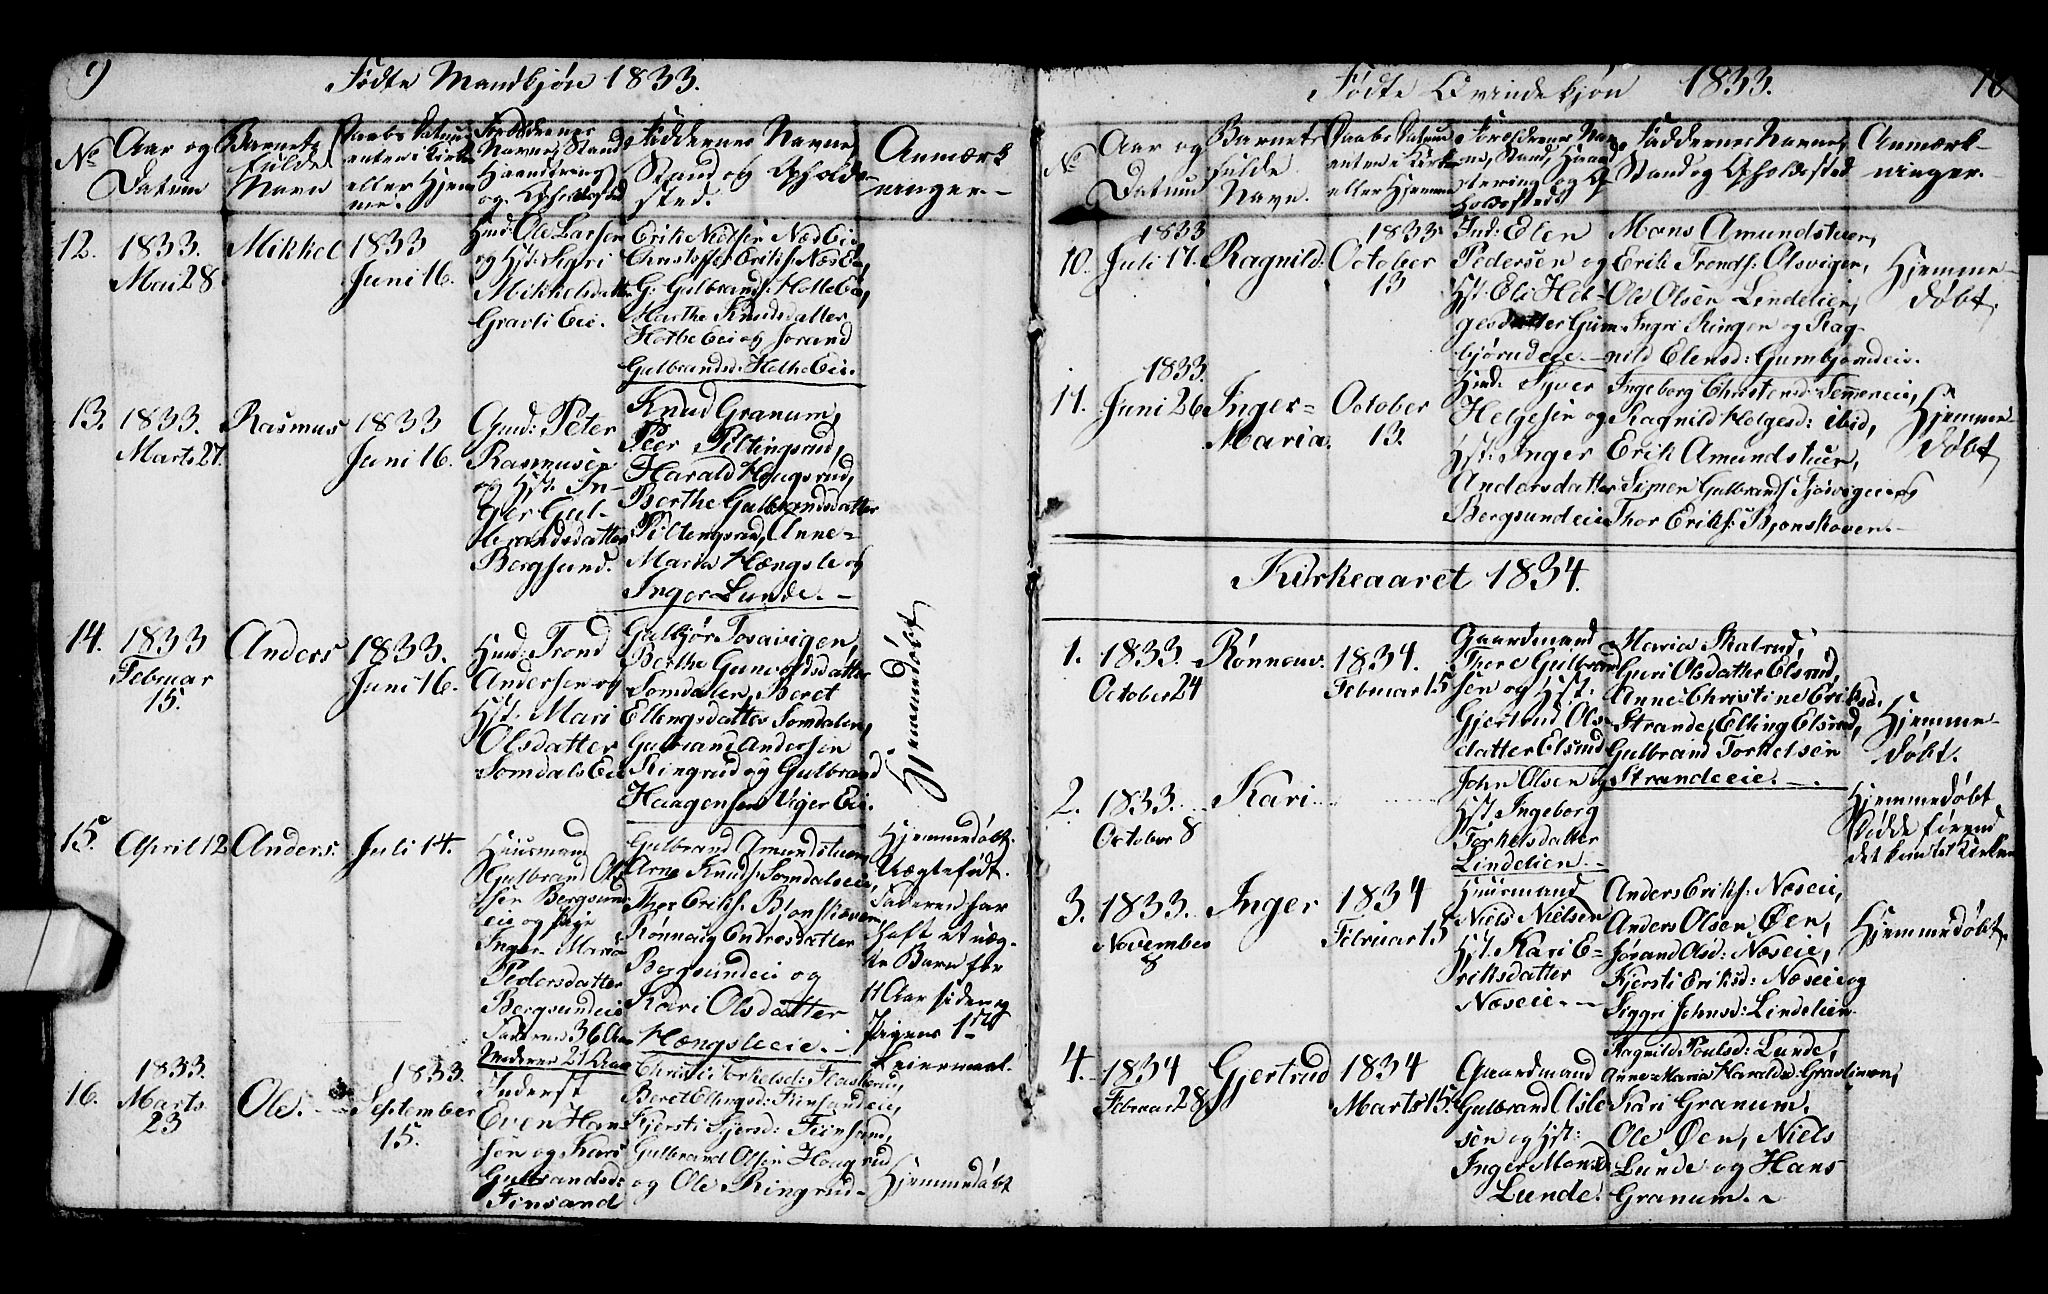 9
Födte Mandkjön 1833.
No
Aar og
Datum
Barnets
fulde
Navn
Daabs Datum
enten i Kirke
eller Hjem
me.
Forældrenes
Navne, Stand
Haandtering
og Opholdssted
Faddernes Navne
Stand og Opholds
sted.
Anmærk
ninger.
12.
1833.
Mai 28
Mikkel
1833
Juni 16.
Hmd: Ole Larsen
og Hst: Sigri
Mikkelsdatter
Gravli Eie.
Erik Nielsen Næs Eie
Christoffer Eriks. Næs Eie,
G: Gulbrands: Holte Eie,
Marthe Knudsdatter
Holthe Eie og Jorand
Gulbrandsd: Holthe Eie.
13.
1833.
Marts 27.
Rasmus
1833
Juni 16.
Gmd: Peter
Rasmusen
og Hst. In-
ger Gul-
brandsdatter
Bergsund.
Knud Granum,
Peer Piltingsrud,
Harald Haugsrud,
Berthe Gulbrandsdatter
Piltengsrud, Anne-
Maria Hængsle og
Inger Lunde.
14.
1833
Februar
15.
Anders
1833.
Juni 16.
Hmd: Trond
Andersen og
Hst. Mari
Olsdatter
Somdals Eie
Gulbjör Tosavigen,
Berthe Gunvoldsdatter
Somdalen, Beret
Ellengsdatter Somdalen,
Gulbrand Andersen
Ringrud og Gulbrand
Haagensen Viger Eie.
Hjemmedöbt
15.
April 12
Anders.
Juli 14.
Huusmand
Gulbrand Ol-
sen Bergsund
eie og Pige
Inger Maria
Pedersdatter
Bergsundeie
Faderen 36 Aar
Moderen 21 Aar
Gulbrand Amundstuen
Arne Knuds: Somdalseie,
Thor Eriks. Bjonskoven,
Rönnaug Endresdatter
Bergsundeie og
Kari Olsdatter
Hængsleeie.
Hjemmedöbt.
Uægtefödt.
Faderen har
haft et uæg-
te Barn for
11 Aar siden og
Pigens 1ste
Leiermaal.
16.
1833.
Marts
23
Ole.
1833.
September
15.
Inderst
Even Han
sen og Kari
Gulbrandsd:
Finsand
Christi Torkelsd:
Beret Ellengsd: Finsandeie,
Kjersti Syversd: Finsand,
Gulbrand Olsen Haugsrud
og Ole Ringrud
Hjemmedöbt
10
Födte Qvindekjön 1833.
No
Aar og
Datum
Barnets
fulde
Navn.
Daabs Datum
enten i Kirke
eller Hjemme
Forældrenes Nav
ne, Stand, Haand
tering og Op
holdssted
Faddernes Navne,
Stand og Opholdssted
Anmærk-
ninger.
10.
1833
Juli 17.
Ragnild:
1833
October
13
Ind: Elen
Pedersen og
Hst: Eli Hel-
gesdatter Gum-
björudeie.
Mons Amundstuen,
Erik Tronds: Olsvigen,
Ole Olsen Lindelien,
Ingri Ringen og Rag-
nild Elensd: Gumbjorudeie.
Hjemme-
döbt.
11.
1833.
Juni 26
Inger=
Maria.
October
13.
Hmd: Syver
Helgesen og
Hst: Inger
Andersdatter
Bergsundeie
Ingeborg Christensd:
Ragnild Helgesd: ibid,
Erik Amundstuen,
Simen Gulbrands:
Thor Eriks: Bjonskoven.
Hjemme
döbt
Kirkeaaret 1834.
1.
1833.
October 24
Rönnou.
1834.
Februar 15
Gaardmand
Thore Gulbrand
sen og Hst:
Gjertrud Ols-
datter Elsrud
Maria Skalrud,
Guri Olsdatter Elsrud,
Anne Christine Eriksd:
Strande, Elling Elsrud,
Gulbrand Torkelsen
Strandeeie.
Hjemme-
döbt.
2.
1833.
October 8
Kari
John Olsen og
Hst. Ingeborg
Torkelsdatter
Lindelien.
Hjemmedöbt
Döde förend
det kom til Kirken
3.
1833.
November
8
Inger
1834
Februar 15
Huusmand
Niels Nielsen
Hst. Kari E-
riksdatter
Næseie.
Anders Eriks. Næseie,
Anders Olsen Öen,
Jörand Olsd: Næseie,
Kjersti Eriksd: Næseie og
Siggri Johnsd: Lindelien
Hjemmedöbt.
4.
1834
Februar 28
Gjertrud
1834
Marts 15.
Gaardmand
Gulbrand Olsle
sen og Hst:
Inger Monsd
Lunde.
Ragnild Poulsd: Lunde,
Anne Maria Haralds: Gravlimoen,
Kari Granum,
Ole Öen, Niels
Lunde og Hans
Granum.